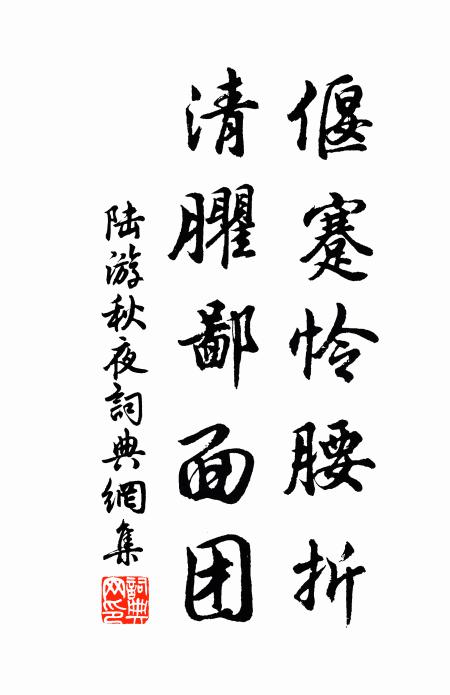 偃蹇怜腰折
清臞鄙面团
陆游秋夜詞典網集
詞典网印